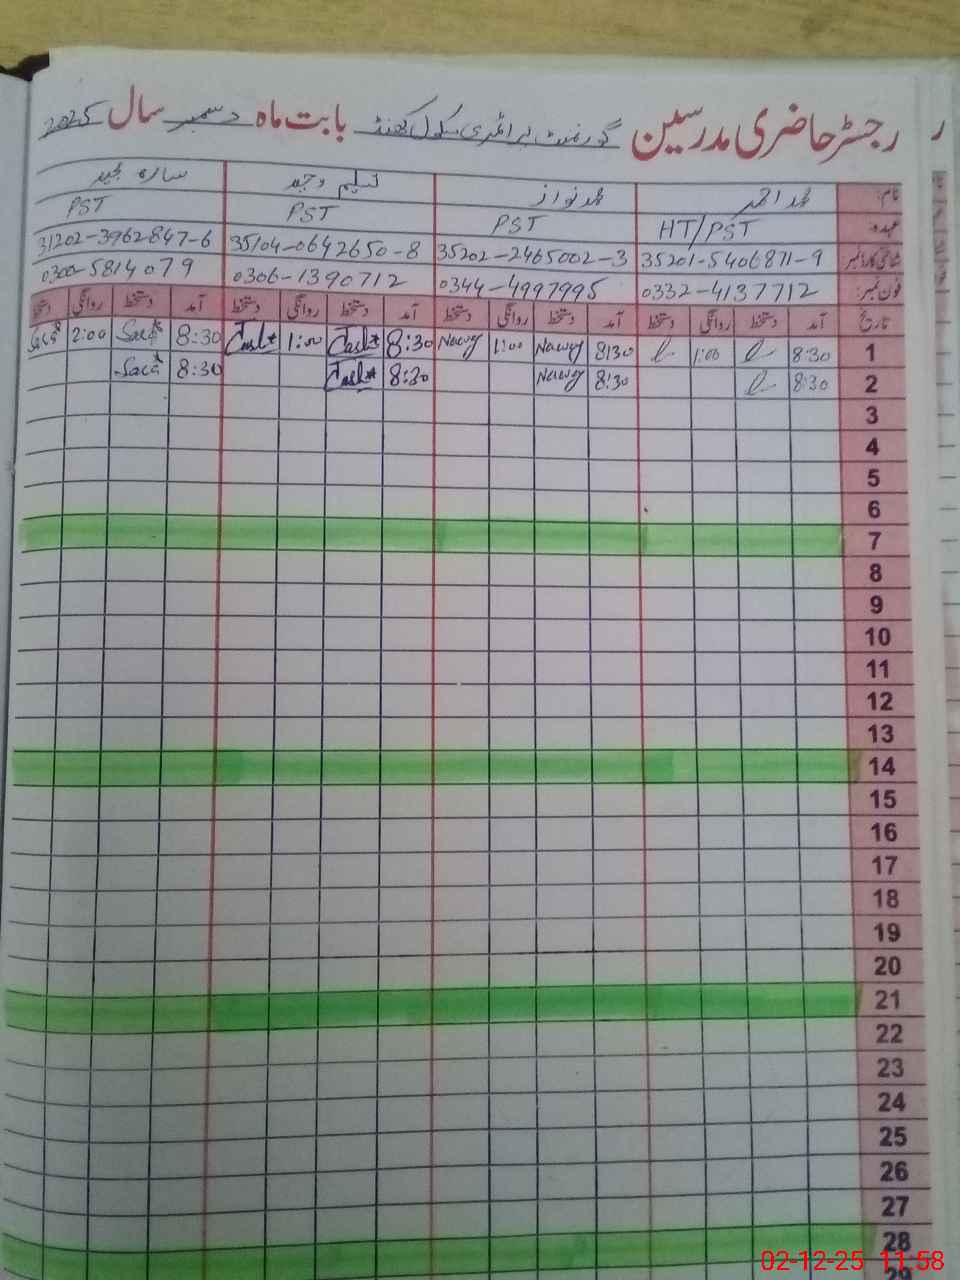 رجسٹر حاضری مدرسین گورنمنٹ پرائمری سکول کھنڈ بابت ماہ دسمبر سال 2025
نام: محمد احمد محمد نواز تسلیم وحید سارہ مجید
عہدہ HT/PST PST PST PST
شناختی کارڈ نمبر 35201-5406871-9 35202-2465002-3 35104-0642650-8 31202-3962847-6
فون نمبر: 0332-4137712 0344-4997995 0306-1390712 0300-5814079
تاریخ آمد دستخط روانگی دستخط آمد دستخط روانگی دستخط آمد دستخط روانگی دستخط آمد دستخط روانگی دستخط
1 8:30 1:00 8:30 Nawaz 1:00 Nawaz 8:30 1:00 8:30 Sara 2:00 Sara
2 8:30 8:30 Nawaz 8:30 8:30 Sara
3
4
5
6
7
8
9
10
11
12
13
14
15
16
17
18
19
20
21
22
23
24
25
26
27
28
29
02-12-25 11:58